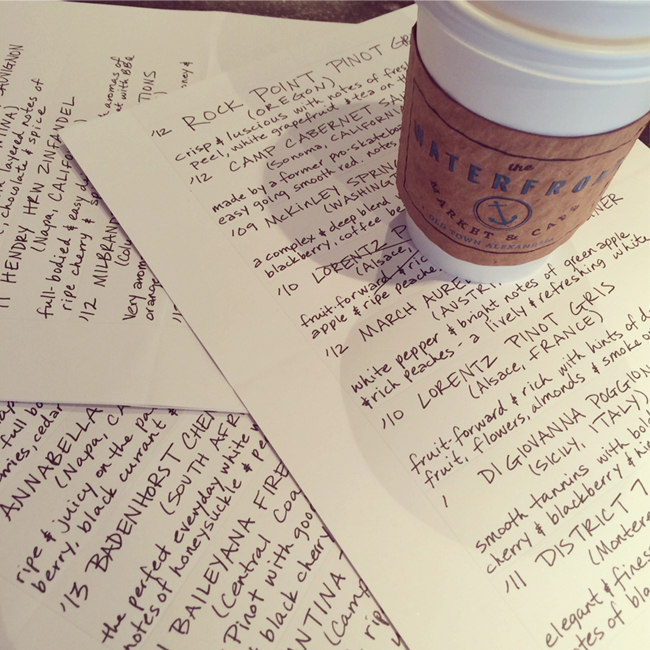 SAUVIGNON
layered notes of
, chocolate & spice
11 HENDRY HRW ZINFANDEL
(Napa, CALIFO
full-bodied & easy d
ripe cherry & sp
'12 MILBRAND
very arom
orange
aromas of
t with BBQ
TIONS
honey &
'12 ROCK POINT PINOT GR
(OREGON)
crisp & luscious with notes of fresh
peel, white grapefruit & tea on th
'12 CAMP CABERNET SA
(Sonoma, CALIFORN
made by a former pro-skateboa
easy going smooth red. notes
'09 McKINLEY SPRIN
(WASHING
a complex & deep blend
blackberry, coffee be
'10 LORENTZ P
NER
(Alsace,
fruit-forward & ric
apple & ripe peache
'12 MARCH AURE
(AUSTRI
white pepper & bright notes of green apple
& rich peaches - a lively & refreshing white
'10 LORENTZ PINOT GRIS
(Alsace, FRANCE)
fruit-forward & rich with hints of d
fruit, flowers, almonds & smoke o
DI GIOVANNA POGGION
(SICILY, ITALY)
smooth tannins with bold
cherry & blackberry & hi
'11 DISTRICT 7
(Montere
elegant & finess
notes of bla
full bo
ries, cedar
ANNABELLA
(Napa, CA
ripe & juicy on the pa
berry, black currant &
'13 BADENHORST CHEN
(SOUTH AFR
the perfect everyday white w
notes of honeysuckle & pe
BAILEYANA FIRE
(Central Coa
Pinot with goo
& black cherry
NTINA
(Camp
rip
the
WATERFRON
MARKET & CAFE
OLD TOWN ALEXANDRIA